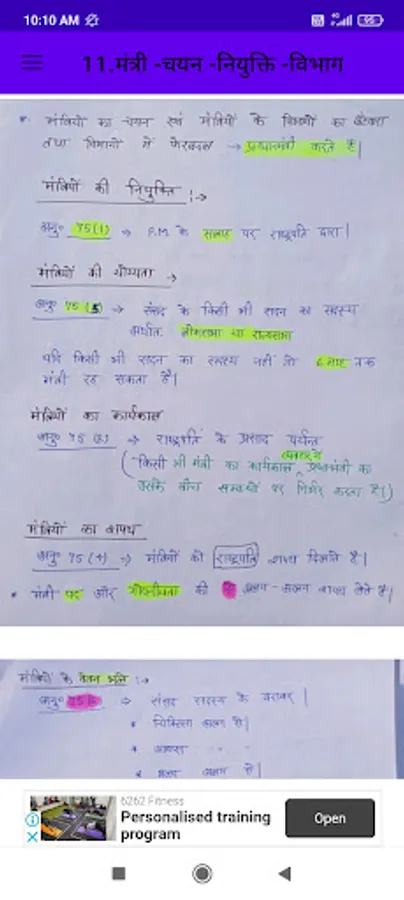 10:10 AM
95
11.मंत्री -चयन -नियुक्ति -विभाग
मंत्रियों का चयन एवं मंत्रियों के विभागों का बँटवारा
तथा विभागों में फेरबदल → प्रधानमंत्री करते है।
मंत्रियों की नियुक्ति :→
अनु० 75(1) → P.M. के सलाह पर राष्ट्रपति द्वारा।
मंत्रियों की योग्यता →
अनु० 75(5) → संसद के किसी भी सदन का सदस्य
अर्थात लोकसभा या राज्यसभा
यदि किसी भी सदन का सदस्य नहीं तो 6 माह तक
मंत्री रह सकता है।
मंत्रियों का कार्यकाल
अनु० 75(2) → राष्ट्रपति के प्रसाद पर्यन्त
(किसी भी मंत्री का कार्यकाल प्रधानमंत्री का
उसके बीच सम्बन्धों पर निर्भर करता है।)
मंत्रियों का शपथ
अनु० 75(4) → मंत्रियों को राष्ट्रपति शपथ दिलाते है।
• मंत्री पद और गोपनीयता की अलग-अलग शपथ लेते है।
मंत्रियों के वेतन भत्ते :→
अनु० → संसद सदस्य के बराबर।
• चिकित्सा अलग से।
• आवास " "
• भत्ता अलग से।
6262 Fitness
Personalised training
program
Open